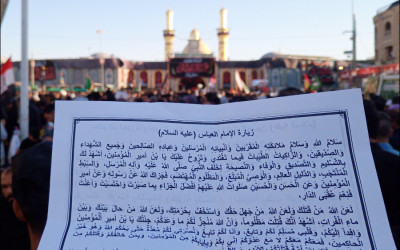 زيارة الإمام العباس (عليه السلام)
سَلامُ اللهِ وَسَلامُ مَلائِكَتِهِ الْمُقَرَّبِينَ وَأَنبِيائِهِ الْمُرْسَلِينَ وَعِبادِهِ الصّالِحِينَ وَجَمِيعِ الشُّهَداءِ
وَالصِّدِّيقِينَ، وَالزّاكِياتُ الطَّيِّباتُ فِيما تَغْتَدِي وَتَرُوحُ عَلَيْكَ يا بْنَ أمِيرِ الْمُؤْمِنِينَ، أشْهَدُ لَكَ
بِالتَّسْلِيمِ وَالتَّصْدِيقِ وَالْوَفاءِ وَالنَّصِيحَةِ لِخَلَفِ النَّبِيِّ صَلَّى اللهُ عَلَيْهِ وَآلِهِ الْمُرْسَلِ، وَالسِّبْطِ
الْمُنْتَجَبِ، وَالدَّلِيلِ الْعالِمِ، وَالْوَصِيِّ الْمُبَلِّغِ، وَالْمَظْلُومِ الْمُهْتَضَمِ فَجَزاكَ اللهُ عَنْ رَسُولِهِ وَعَنْ أمِيرِ
الْمُؤْمِنِينَ وَعَنِ الْحَسَنِ وَالْحُسَيْنِ صَلَواتُ اللهِ عَلَيْهِمْ أفْضَلَ الْجَزاءِ بِما صَبَرْتَ وَاحْتَسَبْتَ وَأعَنْتَ
فَنِعْمَ عُقْبَى الدّارِ.
لَعَنَ اللهُ مَنْ قَتَلَكَ وَلَعَنَ اللهُ مَنْ جَهِلَ حَقَّكَ وَاسْتَخَفَّ بِحُرْمَتِكَ، وَلَعَنَ اللهُ مَنْ حالَ بَيْنَكَ وَبَيْنَ
ماءِ الْفُراتِ، أشْهَدُ أنَّكَ قُتِلْتَ مَظْلُوماً، وَأنَّ اللهَ مُنْجِزٌ لَكُمْ ما وَعَدَكُمْ، جِئْتُكَ يا بْنَ أمِيرِ الْمُؤْمِنِينَ
وافِداً إلَيْكُمْ، وَقَلْبِي مُسَلِّمٌ لَكُمْ وَتابِعٌ، وَأنا لَكُمْ تابِعٌ وَنُصْرَتِي لَكُمْ مُعَدَّةٌ حَتّى يَحْكُمَ اللهُ وَهُوَ خَيْرُ
الْحاكِمِينَ، فَمَعَكُمْ مَعَكُمْ لا مَعَ عَدُوِّكُمْ إنِّي بِكُمْ وَبِإيابِكُمْ